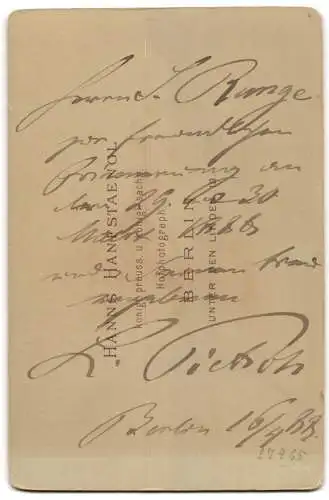 Herrn S. Runge
zur freundlichen
Erinnerung an
den 29. und 30
März 1888
und
L. Pietsch
Berlin 16/4 88.
27965
HANNS HANFSTAENGL
Königl. preuss. u. königl. sächs.
Hofphotograph
BERLIN
UNTER DEN LINDEN